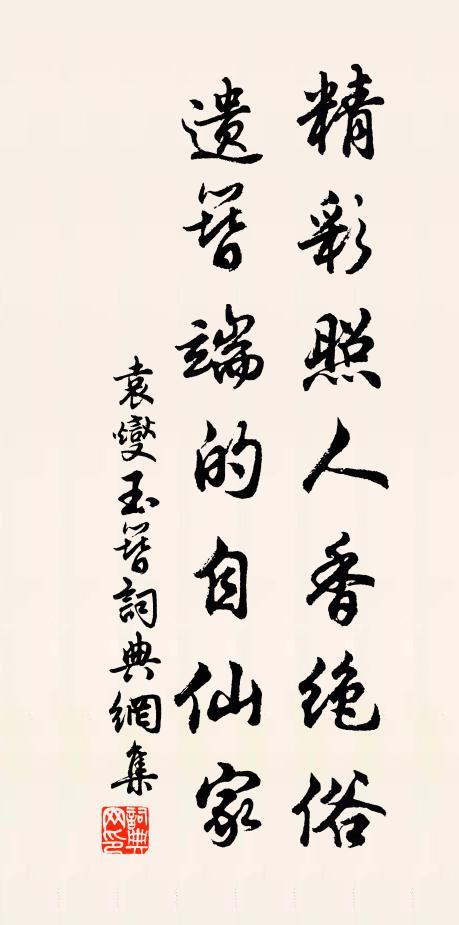 精彩照人香绝俗
遗簪端的自仙家
袁燮玉簪詞典網集
詞典網印